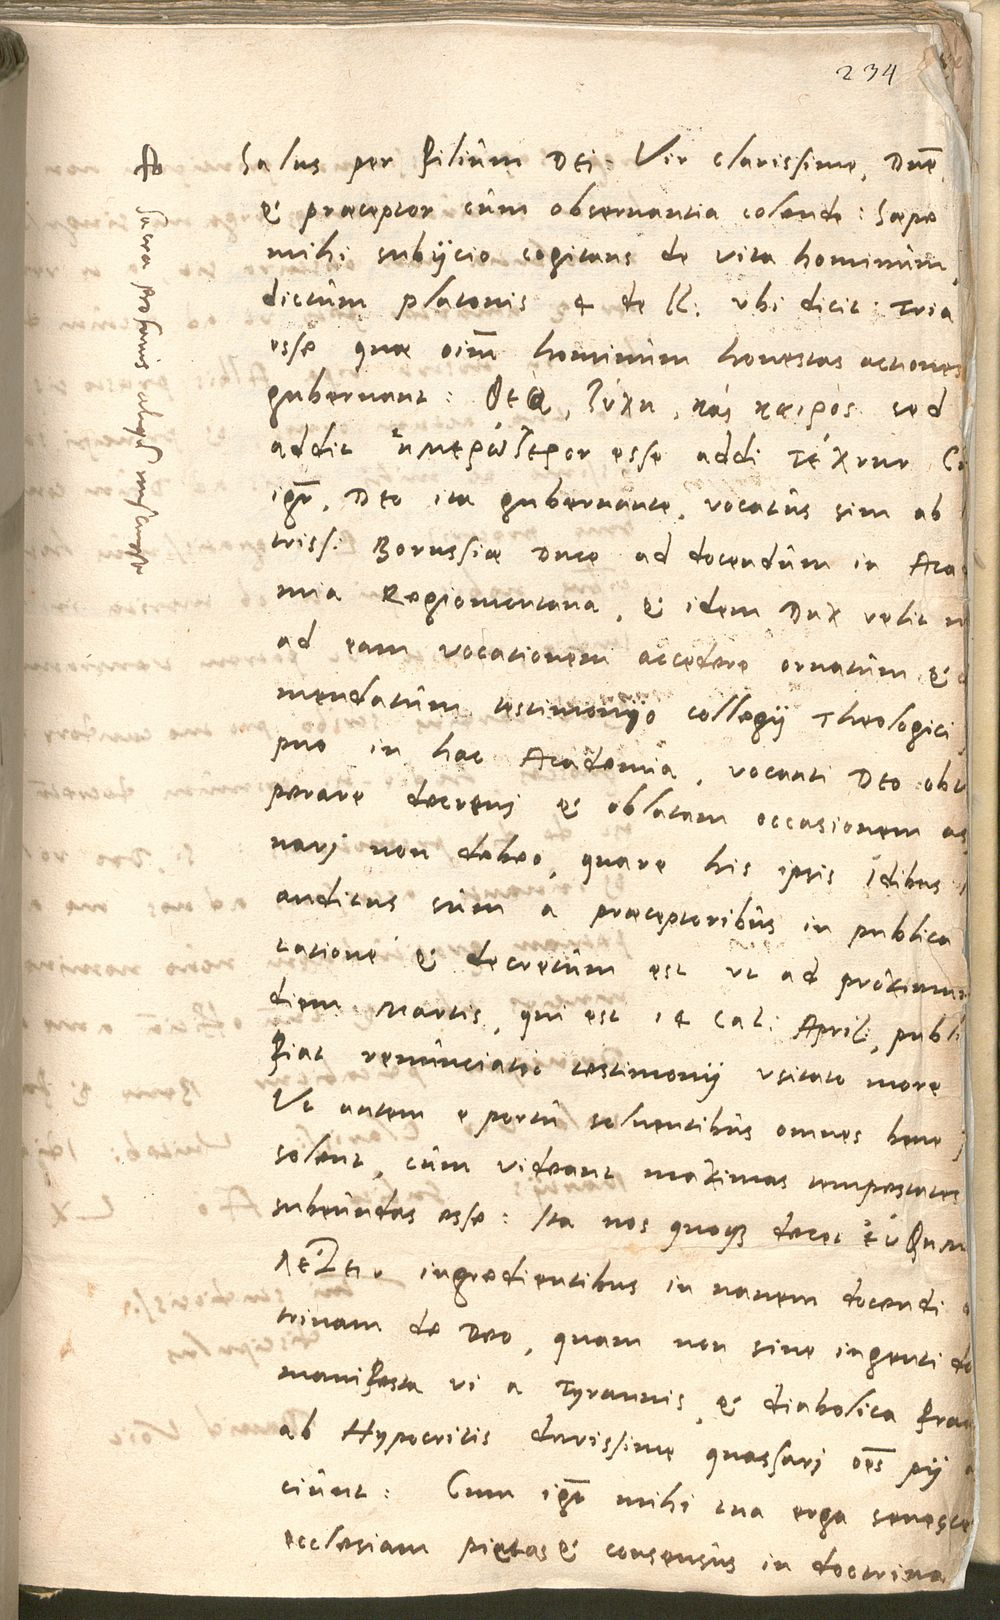 234
Salus per filium DEI. Vir clarissime, Dñe
& præceptor cum obseruantia colende: Sæpe
mihi subijcio cogitans de vita hominum,
dictum platonis 4 de ll: vbi dicit: Tria
esse quæ oīm hominum honestas actiones
gubernant: Θεὸς, τύχη, καὶ καιρὸς sed
addit ἡμερώτερον esse addi τέχνην
igr̄, DEO ita gubernante, vocatus sim ab
triss: Borussiæ Duce ad docendum in Aca
mia Regiomontana, & idem Dux velit
ad eam vocationem accedere ornatum &
mendatum testimonijo collegij Theologici
puo in hac Academia, vocanti DEO obt
perare decreui & oblatam occasionem as
nari non debeo, quare his ipsis Idibus
auditus sum a præceptoribus in publica
tatione & decretum est vt ad proximum
diem Martis, qui est 14 Cal: April:, publi
fiat renunciatio testimonij vsitato more
Vt autem e portu soluentibus omnes bene
solent, cum videant maximas tempestates
subeundas esse: Ita nos quoqz decet εὐφημ
λέξειν ingredientibus in nauem docendi
trinam de Deo, quam non sine ingenti do
manifesta vi a Tyrannis, & diabolica frau
ab Hypocritis durissime quassari oēs pij
ciunt: Cum igr̄ mihi tua erga senesce
ecclesiam pietas & consensus in doctrina